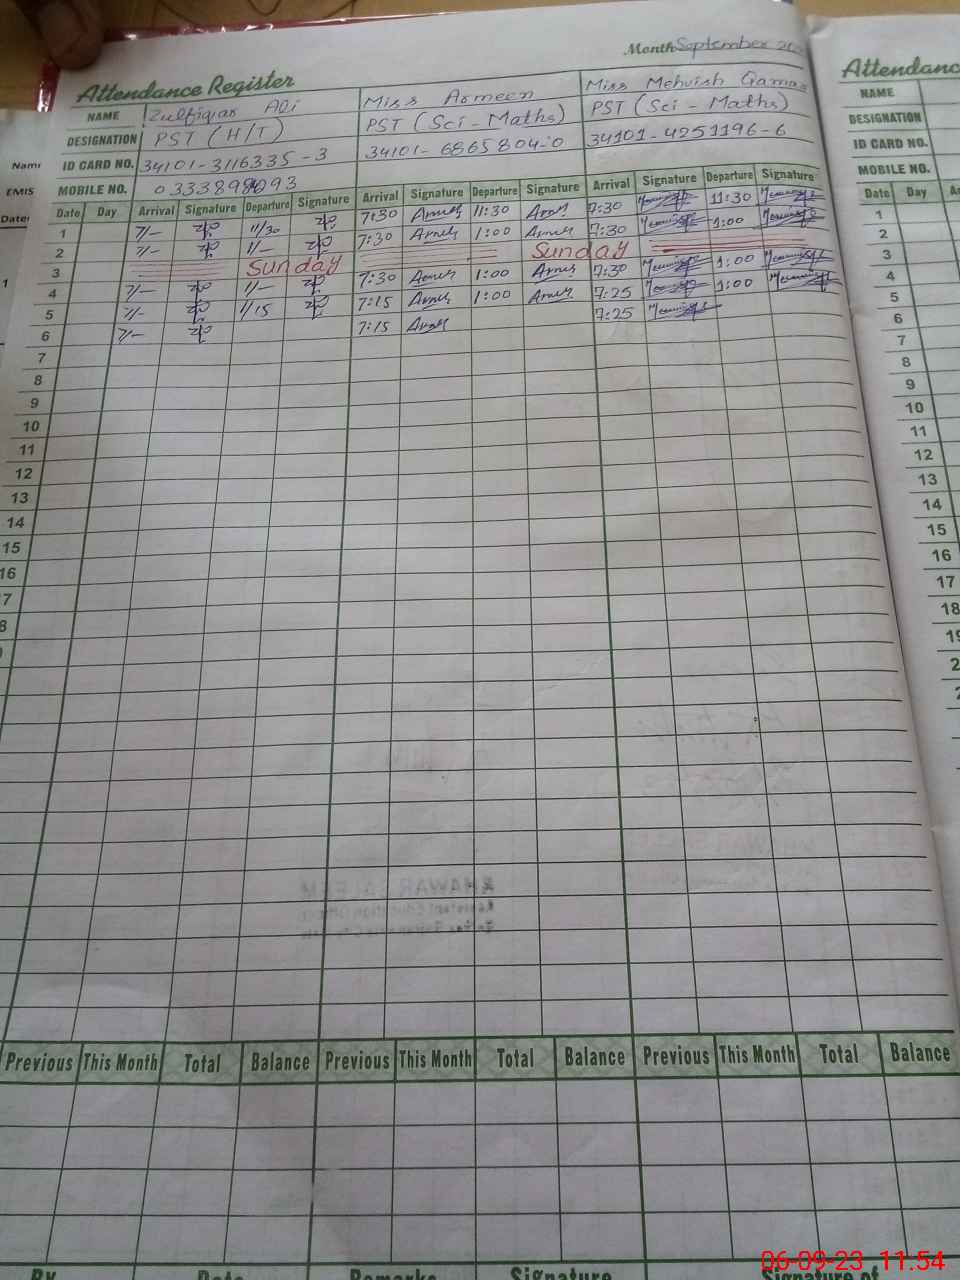 Month September 20
Attendance Register
Attendanc
NAME Zulfiqar Ali Miss Armeen Miss Mehvish Qamar
NAME
DESIGNATION PST (H/T) PST (Sci - Maths) PST (Sci - Maths)
DESIGNATION
ID CARD NO. 34101-3116335-3 34101-6865804-0 34101-4251196-6
ID CARD NO.
MOBILE NO.
MOBILE NO.
Date Day Arrival Signature Departure Signature Arrival Signature Departure Signature Arrival Signature Departure Signature
Date Day
1 7/- 11/30 7:30 11:30 7:30 11:30
2 7/- 1/- 7:30 1:00 7:30 1:00
3 Sunday Sunday
4 7/- 1/- 7:30 1:00 7:30 1:00
5 7/- 1/15 7:15 1:00 7:25 1:00
6 7/- 7:15 7:25
7
8
9
10
11
12
13
14
15
16
1
2
3
4
5
6
7
8
9
10
11
12
13
14
15
16
17
18
Name
EMIS
Date
1
Previous This Month Total Balance Previous This Month Total Balance Previous This Month Total Balance
By Date Remarks Signature Signature of
06-09-23 11:54